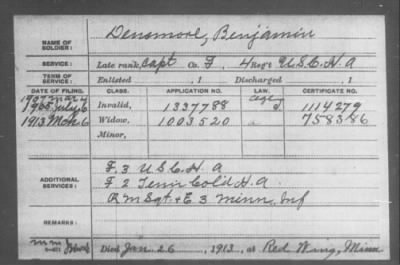 NAME OF SOLDIER: Densmore, Benjamin
SERVICE: Late rank, Capt Co. F, 4 Reg't U.S.C.H.A
TERM OF SERVICE: Enlisted , 1 Discharged , 1
DATE OF FILING. CLASS. APPLICATION NO. LAW. CERTIFICATE NO.
1905 July 6 Invalid, 1337788 1114279
1913 Mch 6 Widow, 1003520 758386
Minor,
ADDITIONAL SERVICES: F. 3 U S C. H. A
F 2 Tenn Cold H. A
R M Sgt + E 3 Minn. Inf
REMARKS:
Died Jan 26 , 1913, at Red Wing, Minn